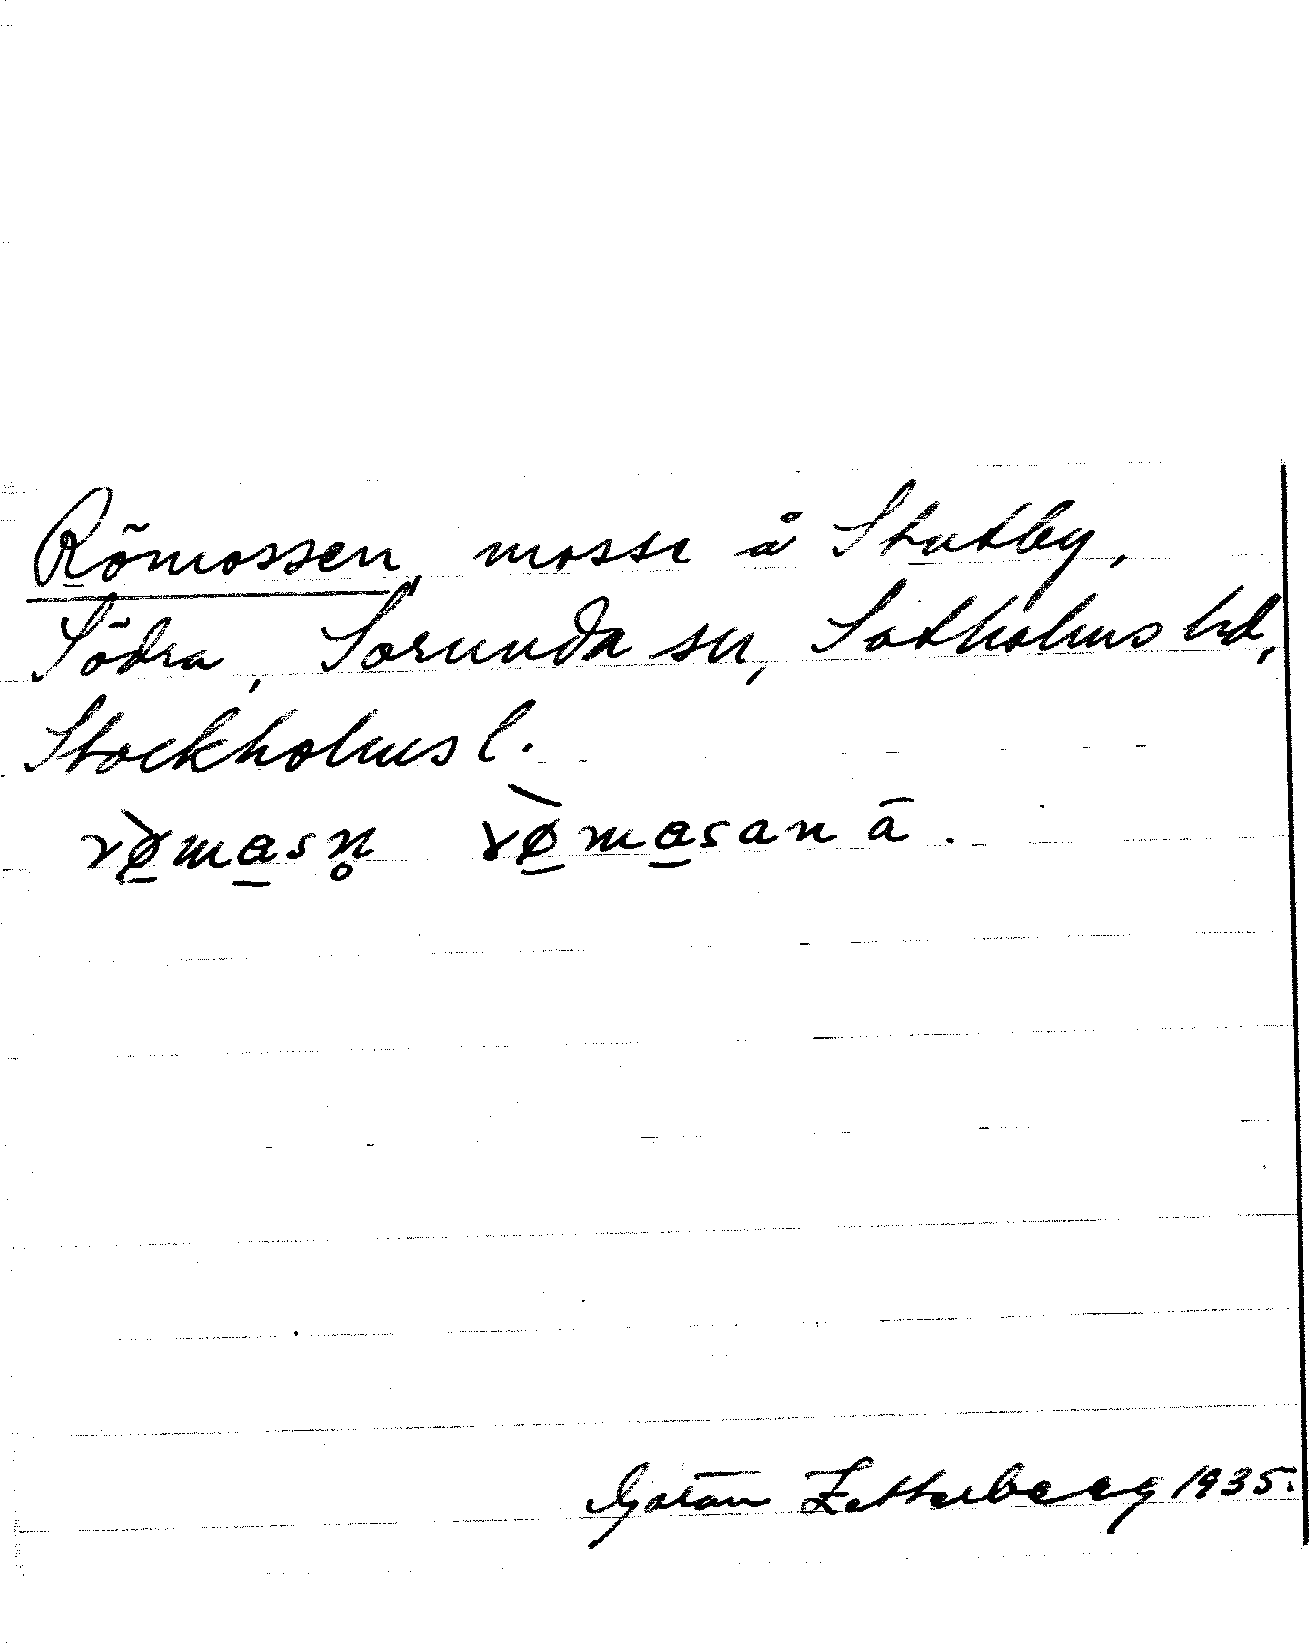 Römossen, mosse å Stutby,
Södra, Sorunda sn, Sotholms hd,
Stockholms l.
rø̠̀ma̠sn̥ rø̠̀ma̠sanā.
Göran Zetterberg 1935.